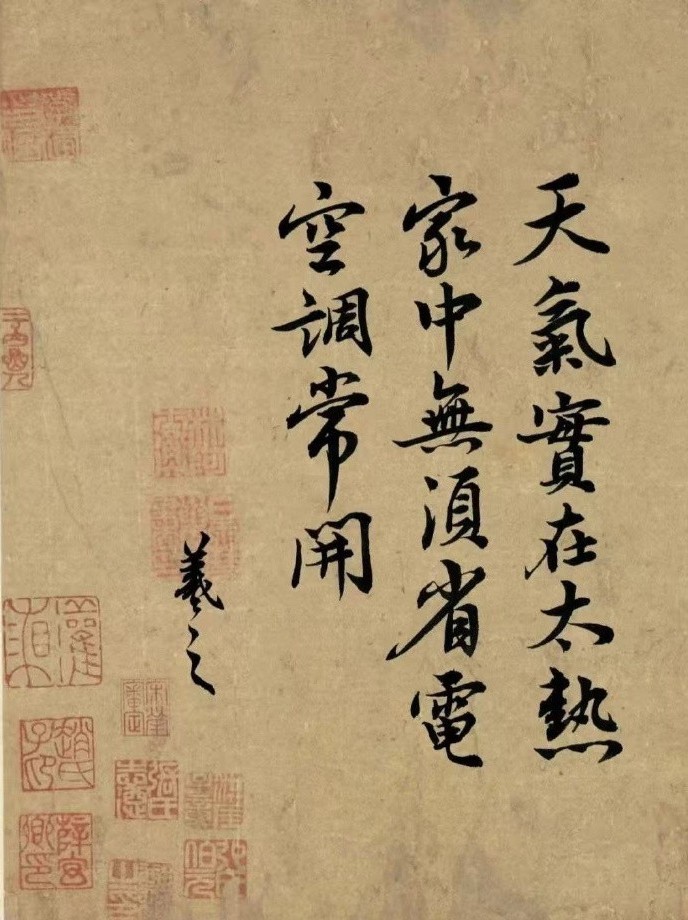 天氣實在太熱
家中無須省電
空調常開
羲之